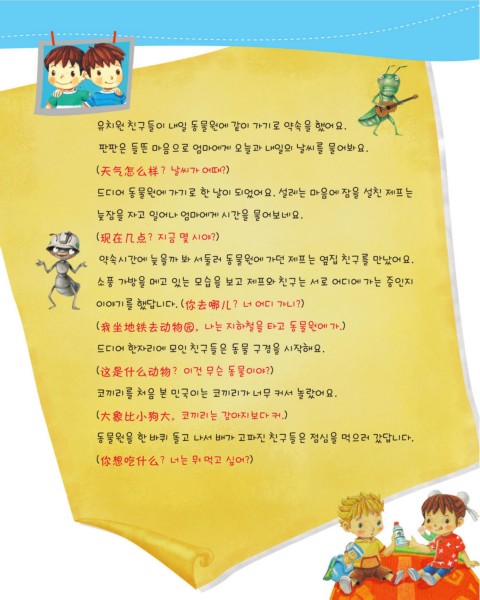 유치원 친구들이 내일 동물원에 같이 가기로 약속을 했어요.
판판은 들뜬 마음으로 엄마에게 오늘과 내일의 날씨를 물어봐요.
(天气怎么样? 날씨가 어때?)
드디어 동물원에 가기로 한 날이 되었어요. 설레는 마음에 잠을 설친 제프는
늦잠을 자고 일어나 엄마에게 시간을 물어보네요.
(现在几点? 지금 몇 시야?)
약속시간에 늦을까 봐 서둘러 동물원에 가던 제프는 옆집 친구를 만났어요.
소풍 가방을 메고 있는 모습을 보고 제프와 친구는 서로 어디에 가는 중인지
이야기를 했답니다. (你去哪儿? 너 어디 가니?)
(我坐地铁去动物园, 나는 지하철을 타고 동물원에 가.)
드디어 한자리에 모인 친구들은 동물 구경을 시작해요.
(这是什么动物? 이건 무슨 동물이야?)
코끼리를 처음 본 민국이는 코끼리가 너무 커서 놀랐어요.
(大象比小狗大, 코끼리는 강아지보다 커.)
동물원을 한 바퀴 돌고 나서 배가 고파진 친구들은 점심을 먹으러 갔답니다.
(你想吃什么? 너는 뭐 먹고 싶어?)